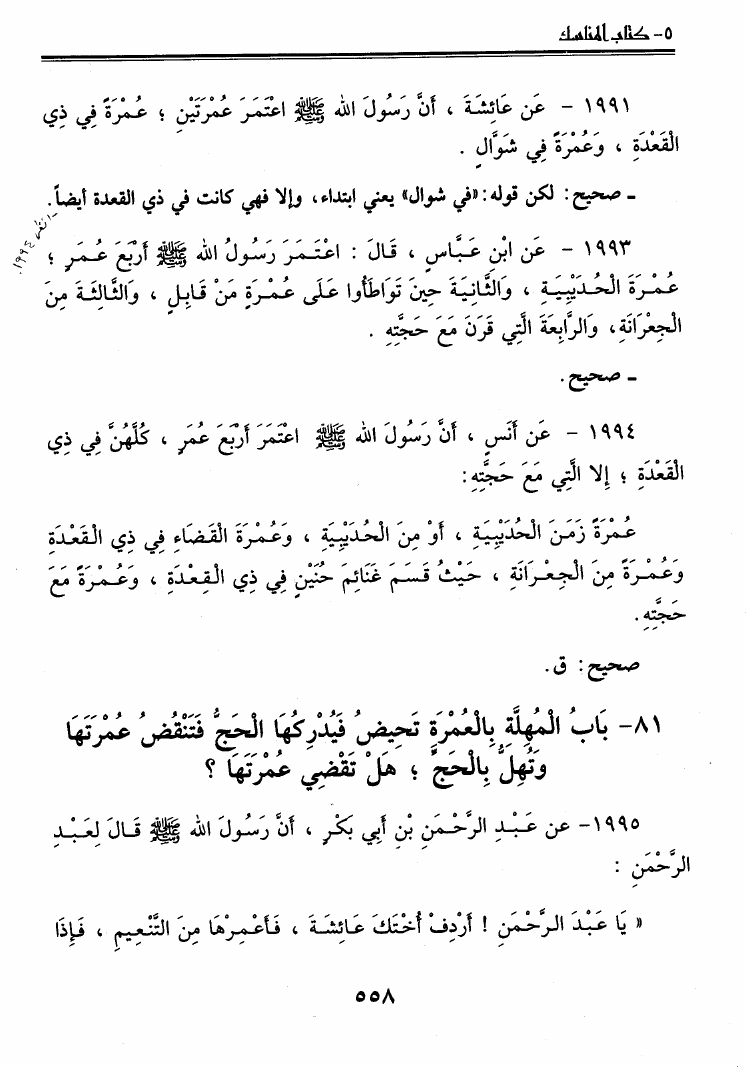 ٥- كتاب المناسك
١٩٩١ - عَن عَائِشَةَ ، أَنَّ رَسُولَ الله ﷺ اعْتَمَرَ عُمْرَتَيْنِ ؛ عُمْرَةً فِي ذِي
الْقَعْدَةِ ، وَعُمْرَةً فِي شَوَّالٍ .
ـ صحيح: لكن قوله: «في شوال» يعني ابتداء، وإلا فهي كانت في ذي القعدة أيضاً.
١٩٩٣ - عَن ابْنِ عَبَّاسٍ ، قَالَ : اعْتَمَرَ رَسُولُ الله ﷺ أَرْبَعَ عُمَرٍ ؛
عُمْرَةَ الْحُدَيْبِيَةِ ، وَالثَّانِيَةَ حِينَ تَوَاطَأُوا عَلَى عُمْرَةٍ مَنْ قَابِلٍ ، وَالثَّالِثَةَ مِنَ
الْجِعْرَانَةِ، وَالرَّابِعَةَ الَّتِي قَرَنَ مَعَ حَجَّتِهِ .
ـ صحيح.
١٩٩٤ - عَن أَنَسٍ ، أَنَّ رَسُولَ الله ﷺ اعْتَمَرَ أَرْبَعَ عُمَرٍ ، كُلَّهُنَّ فِي ذِي
الْقَعْدَةِ ؛ إِلا الَّتِي مَعَ حَجَّتِهِ:
عُمْرَةً زَمَنَ الْحُدَيْبِيَةِ ، أَوْ مِنَ الْحُدَيْبِيَةِ ، وَعُمْرَةَ الْقَضَاءِ فِي ذِي الْقَعْدَةِ
وَعُمْرَةً مِنَ الْجِعْرَانَةِ ، حَيْثُ قَسَمَ غَنَائِمَ حُنَيْنٍ فِي ذِي الْقِعْدَةِ ، وَعُمْرَةً مَعَ
حَجَّتِهِ .
صحيح: ق.
٨١- بَابُ الْمُهِلَّةِ بِالْعُمْرَةِ تَحِيضُ فَيُدْرِكُهَا الْحَجُّ فَتَنْقُضُ عُمْرَتَهَا
وَتُهِلُّ بِالْحَجِّ ؛ هَلْ تَقْضِي عُمْرَتَهَا ؟
١٩٩٥- عن عَبْدِ الرَّحْمَنِ بْنِ أَبِي بَكْرٍ ، أَنَّ رَسُولَ الله ﷺ قَالَ لِعَبْدِ
الرَّحْمَنِ :
« يَا عَبْدَ الرَّحْمَنِ ! أَرْدِفْ أُخْتَكَ عَائِشَةَ ، فَأَعْمِرْهَا مِنَ التَّنْعِيمِ ، فَإِذَا
٥٥٨